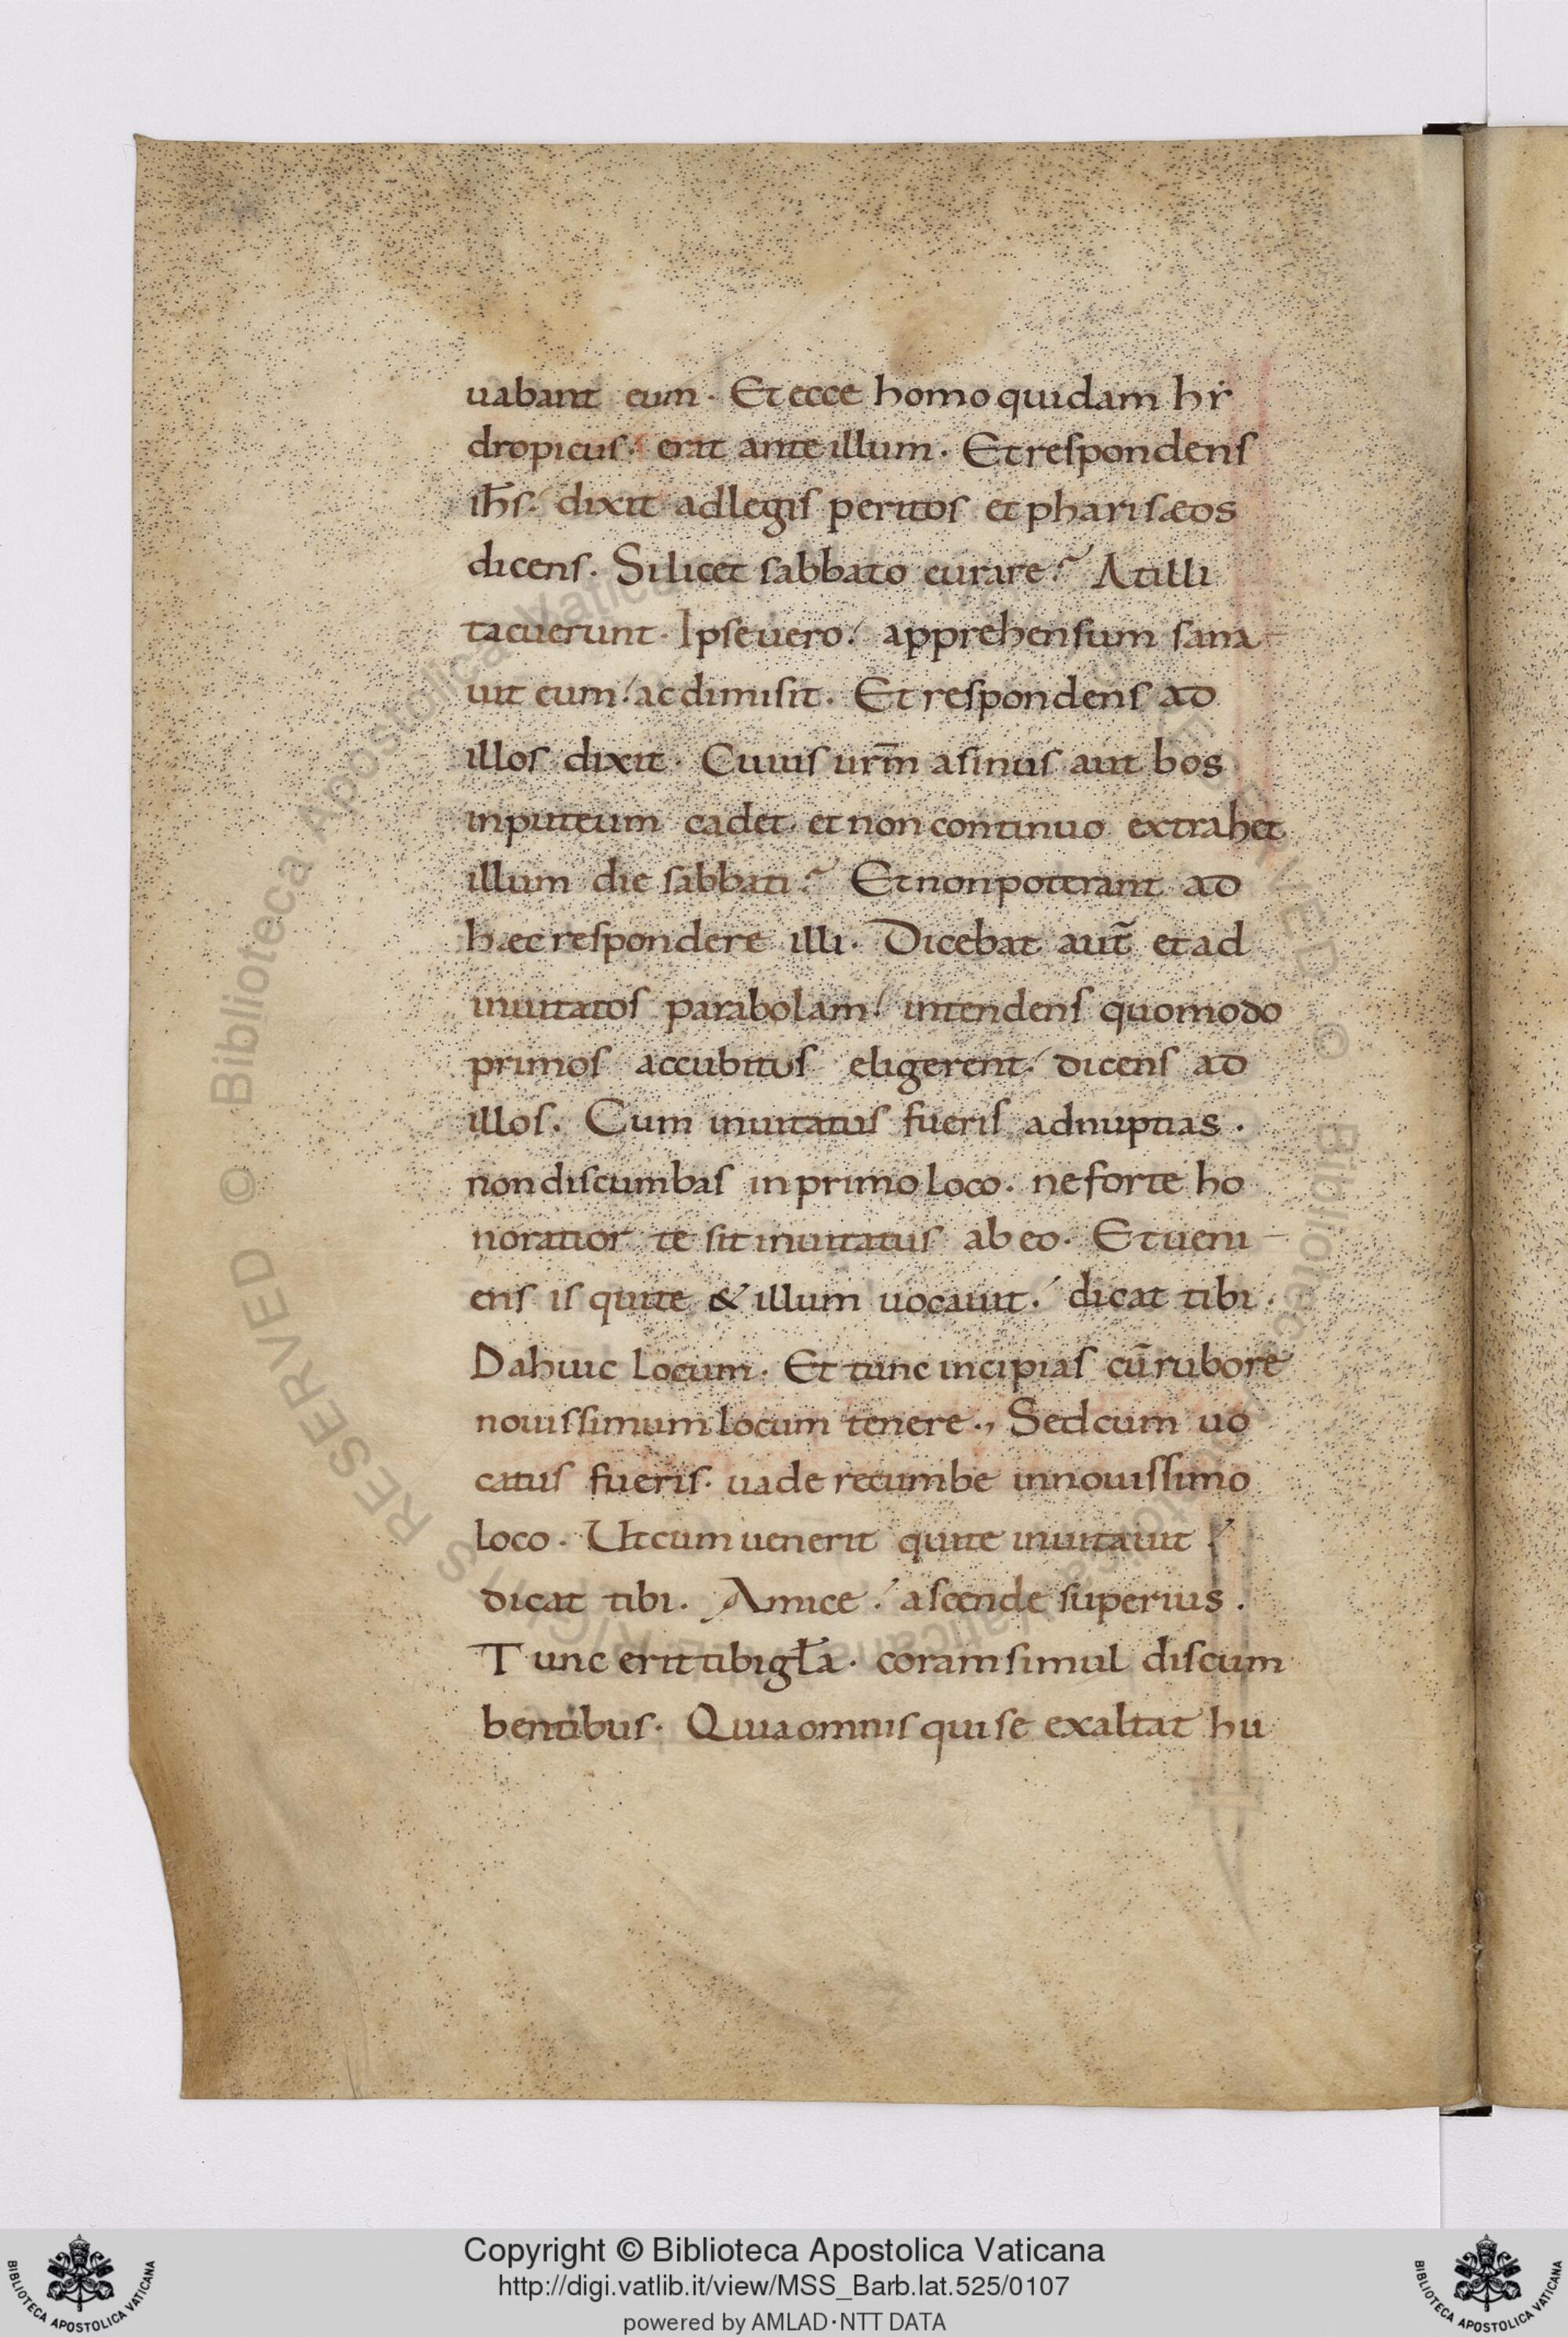 uabant eum. Et ecce homo quidam hẏ
dropicus. erat ante illum. Et respondens
ih̅s. dixit ad legis peritos et pharisæos
dicens. Si licet sabbato curare? At illi
tacuerunt. Ipse uero. apprehensum sana-
uit eum. ac dimisit. Et respondens ad
illos dixit. Cuius ur̅m asinus aut bos
in puteum cadet. et non continuo extrahet
illum die sabbati? Et non poterant ad
hæc respondere illi. Dicebat aut̃ et ad
inuitatos parabolam. intendens quomodo
primos accubitus eligerent. dicens ad
illos. Cum inuitatus fueris ad nuptias.
non discumbas in primo loco. ne forte ho
noratior te sit inuitatus ab eo. Et ueni-
ens is qui te & illum uocauit. dicat tibi.
Da huic locum. Et tunc incipias cū rubore
nouissimum locum tenere., Sed cum uo
catus fueris. uade recumbe in nouissimo
loco. Ut cum uenerit qui te inuitauit.
dicat tibi. Amice. ascende superius.
Tunc erit tibi gła. coram simul discum
bentibus. Quia omnis qui se exaltat hu
Copyright © Biblioteca Apostolica Vaticana
http://digi.vatlib.it/view/MSS_Barb.lat.525/0107
powered by AMLAD·NTT DATA
BIBLIOTECA APOSTOLICA VATICANA
BIBLIOTECA APOSTOLICA VATICANA